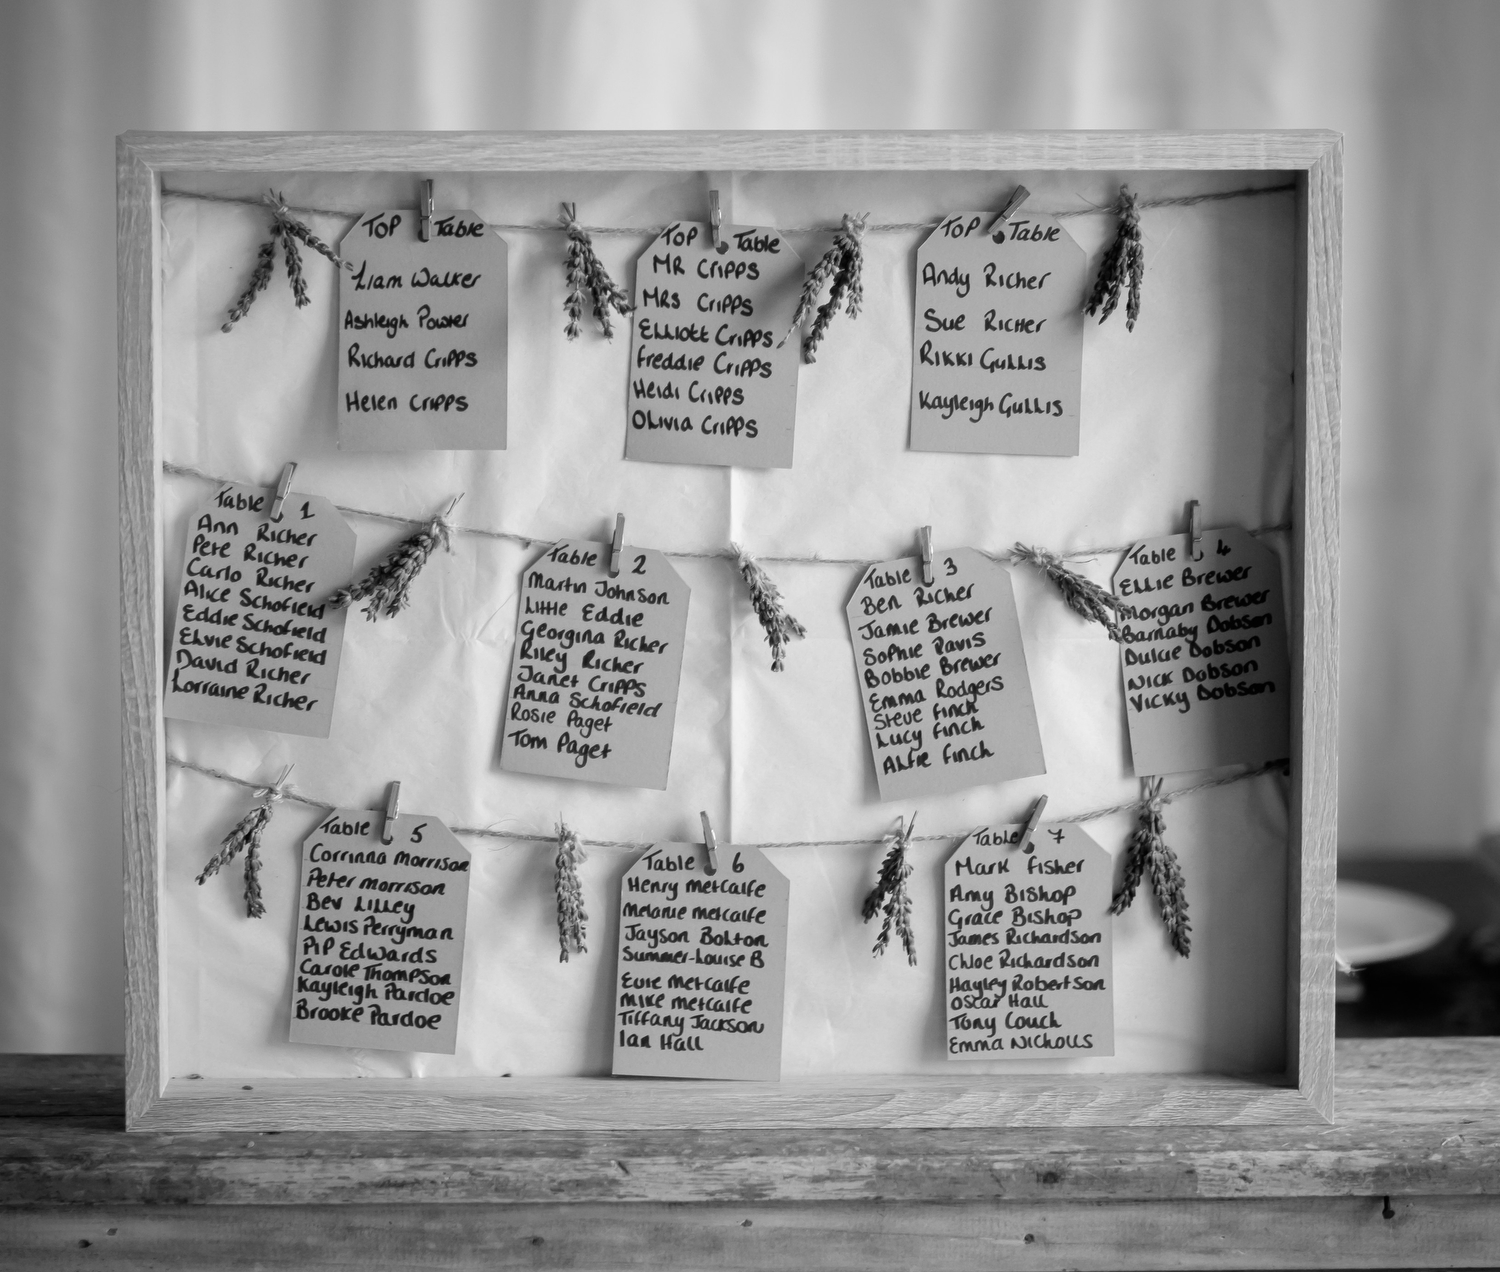 Top Table
Liam Walker
Ashleigh Power
Richard Cripps
Helen Cripps
Top Table
MR Cripps
MRs Cripps
Elliott Cripps
Freddie Cripps
Heidi Cripps
Olivia Cripps
Top Table
Andy Richer
Sue Richer
Rikki Gullis
Kayleigh Gullis
Table 1
Ann Richer
Pete Richer
Carlo Richer
Alice Schofield
Eddie Schofield
Elvie Schofield
David Richer
Lorraine Richer
Table 2
Martin Johnson
Little Eddie
Georgina Richer
Riley Richer
Janet Cripps
Anna Schofield
Rosie Paget
Tom Paget
Table 3
Ben Richer
Jamie Brewer
Sophie Davis
Bobbie Brewer
Emma Rodgers
Steve Finch
Lucy Finch
Alfie Finch
Table 4
Ellie Brewer
Morgan Brewer
Barnaby Dobson
Dulcie Dobson
Nick Dobson
Vicky Dobson
Table 5
Corrinna Morrison
Peter Morrison
Bev Lilley
Lewis Perryman
Pip Edwards
Carole Thompson
Kayleigh Pardoe
Brooke Pardoe
Table 6
Henry Metcalfe
Melanie Metcalfe
Jayson Bolton
Summer-Louise B
Evie Metcalfe
Mike Metcalfe
Tiffany Jackson
Ian Hall
Table 7
Mark Fisher
Amy Bishop
Grace Bishop
James Richardson
Chloe Richardson
Hayley Robertson
Oscar Hall
Tony Couch
Emma Nicholls